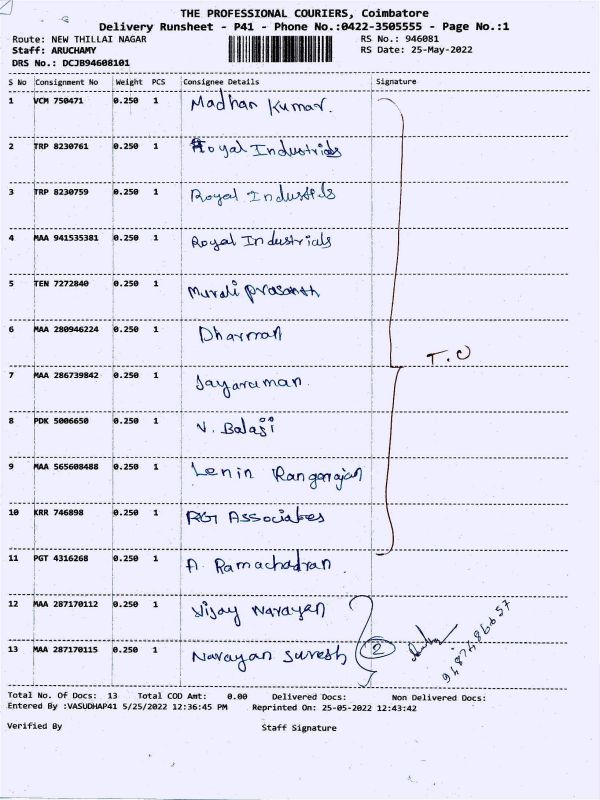 THE PROFESSIONAL COURIERS, Coimbatore
Delivery Runsheet - P41 - Phone No.:0422-3505555 - Page No.:1
Route: NEW THILLAI NAGAR RS No.: 946081
Staff: ARUCHAMY RS Date: 25-May-2022
DRS No.: DCJB94608101
S No Consignment No Weight PCS Consignee Details Signature
1 VCM 750471 0.250 1 Madhan Kumar.
2 TRP 8230761 0.250 1 Royal Industrials
3 TRP 8230759 0.250 1 Royal
4 MAA 941535381 0.250 1 Royal Industrials
5 TEN 7272840 0.250 1 Murali Prasanth
6 MAA 280946224 0.250 1 Dharman
T.O
7 MAA 286739842 0.250 1 Jayaraman.
8 PDK 5006650 0.250 1 V. Balaji
9 MAA 565608488 0.250 1 Lenin Rangarajan
10 KRR 746898 0.250 1 RGT Associates
11 PGT 4316268 0.250 1 A. Ramachadran
12 MAA 287170112 0.250 1 Vijay Narayan
13 MAA 287170115 0.250 1 Narayan Suresh 2
Total No. Of Docs: 13 Total COD Amt: 0.00 Delivered Docs: Non Delivered Docs:
Entered By :VASUDHAP41 5/25/2022 12:36:45 PM Reprinted On: 25-05-2022 12:43:42
Verified By Staff Signature